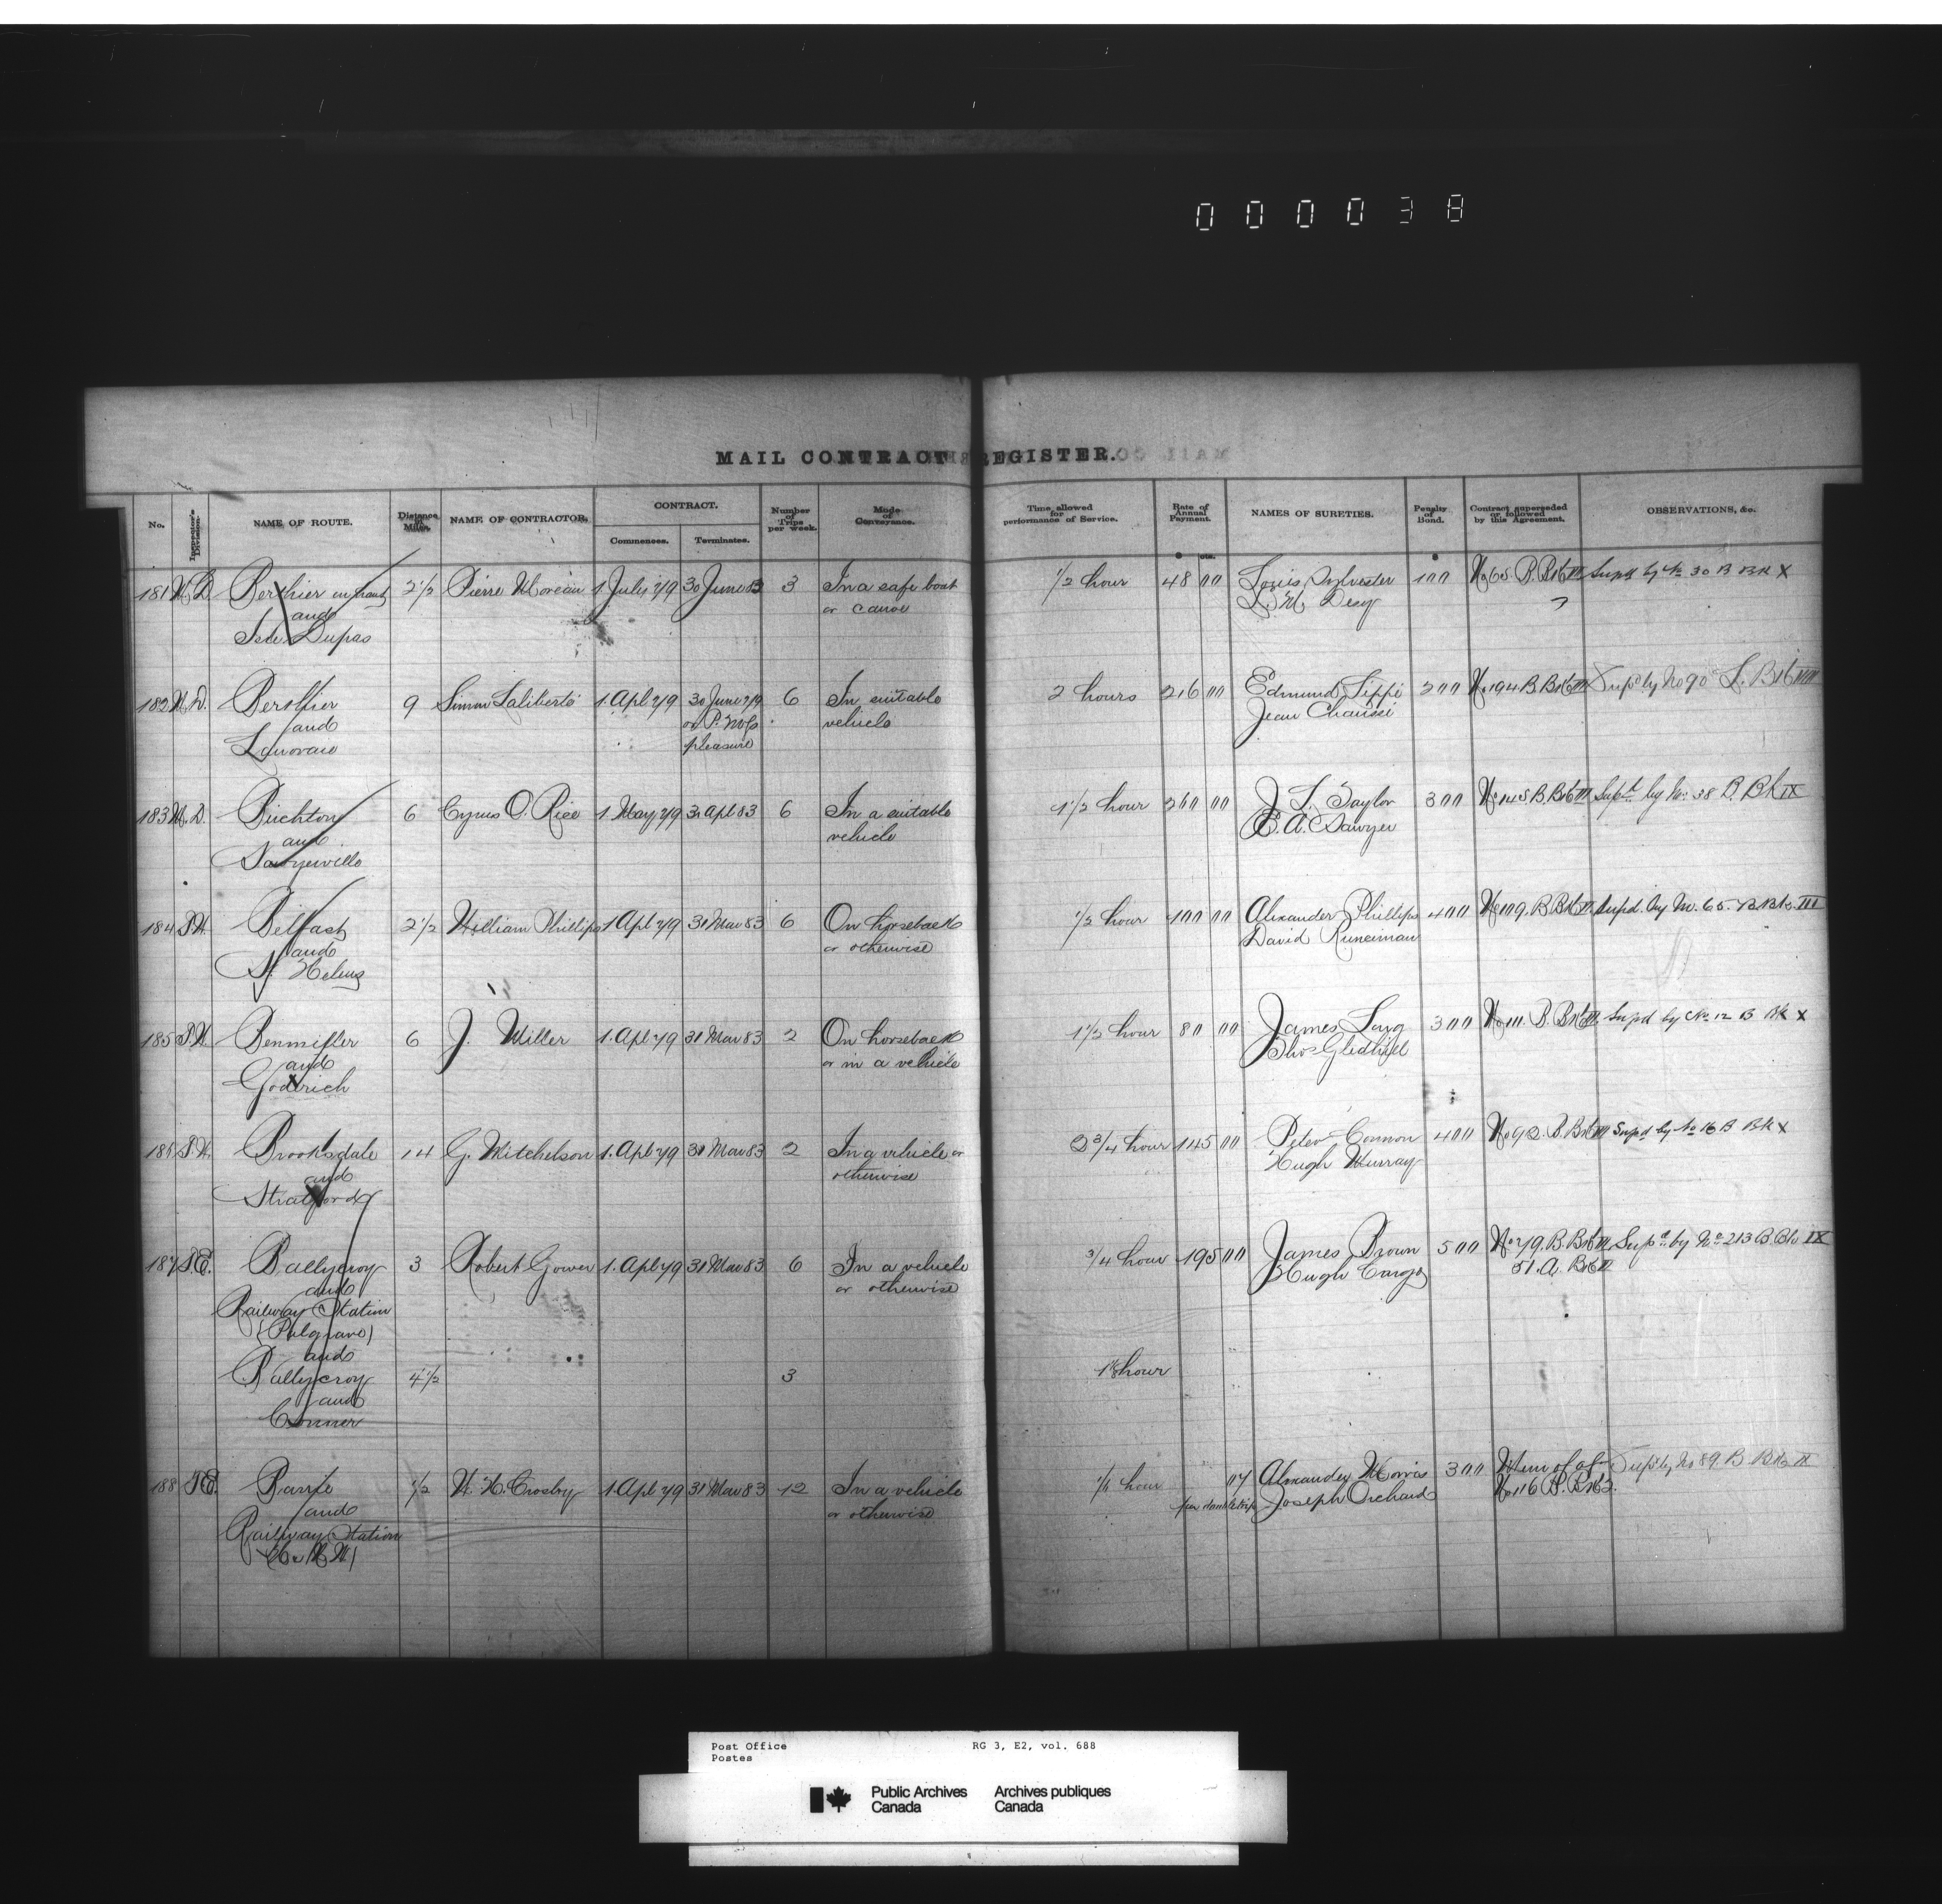 000038
MAIL CONTRACT REGISTER.
No. Inspector's Division. NAME OF ROUTE. Distance in Miles. NAME OF CONTRACTOR. CONTRACT. Commences. Terminates. Number of Trips per week. Mode of Conveyance. Time allowed for performance of Service. Rate of Annual Payment. $ cts. NAMES OF SURETIES. Penalty of Bond. $ Contract superseded or followed by this Agreement. OBSERVATIONS, &c.
181 M.D. Berthier en haut 2 1/2 Pierre Moreau 1 July 79 30 June 83 3 In a safe boat 1/2 hour 48 00 Louis Sylvester 100 No 65 B. Bk III Supd by No 30 B Bk X
and or canoe
Isle Dupas
182 M.D. Berthier 9 Simon Laliberté 1. Apl 79 30 June 79 6 In suitable 2 hours 216 00 Edmund Lippé 200 No 194 B Bk III Supd by No 90 L. Bk VIII
and or P.M.G's vehicle Jean Chaussé
Lanoraie pleasure
183 M.D. Birchton 6 Cyrus O. Rice 1. May 79 30 Apl 83 6 In a suitable 1 1/2 hour 260 00 J. L. Taylor 300 No 145 B. Bk III Supd by No. 38 B. Bk IX
and vehicle E. A. Sawyer
Sawyerville
184 S.W. Belfast 2 1/2 William Phillips 1 Apl 79 31 Mar 83 6 On horseback 1/2 hour 100 00 Alexander Phillips 400 No 109. B Bk III Supd. by No. 65. B. Bk. III
and or otherwise David Runciman
St. Helens
185 S.W. Benmiller 6 J. Miller 1. Apl 79 31 Mar 83 2 On horseback 1 1/2 hour 80 00 James Long 300 No 111. B. Bk III. Supd by No 12 B Bk X
and or in a vehicle Thos Gledhill
Goderich
186 S.W. Brooksdale 14 G. Mitchelson 1. Apl 79 31 Mar 83 2 In a vehicle or 2 3/4 hour 145 00 Peter Connon 400 No 92. B Bk III Supd by No 16 B Bk X
and otherwise Hugh Murray
Stratford
187 T.E. Ballycroy 3 Robert Gower 1. Apl 79 31 Mar 83 6 In a vehicle 3/4 hour 195 00 James Brown 500 No 279. B. Bk III Supd by No 213 B. Bk IX
and or otherwise Hugh Cargo 51. A. Bk II
Railway Station
(Palgrave)
and
Ballycroy 4 1/2 3 hour
and
Connor
188 T.E. Barrie 1/2 W. H. Crosby 1. Apl 79 31 Mar 83 12 In a vehicle 1/4 hour 07 Alexander Morris 300 Item of Supd by No 89. B. Bk IX
and or otherwise per double trip Joseph Orchard No 116 B. Bk 3.
Railway Station
Post Office RG 3, E2, vol. 688
Postes
Public Archives Archives publiques
Canada Canada